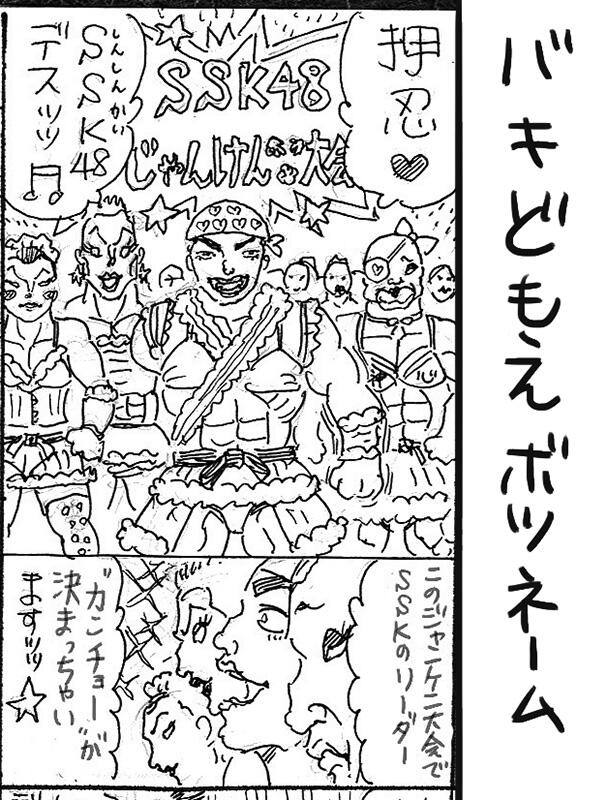 バキどもえボツネーム
押忍♥
SSK48
じゃんけん大会
しんしんかい
SSK48
デスッッ♫
このジャンケン大会で
SSKのリーダー
"カンチョー"が
決まっちゃい
ますッッ☆